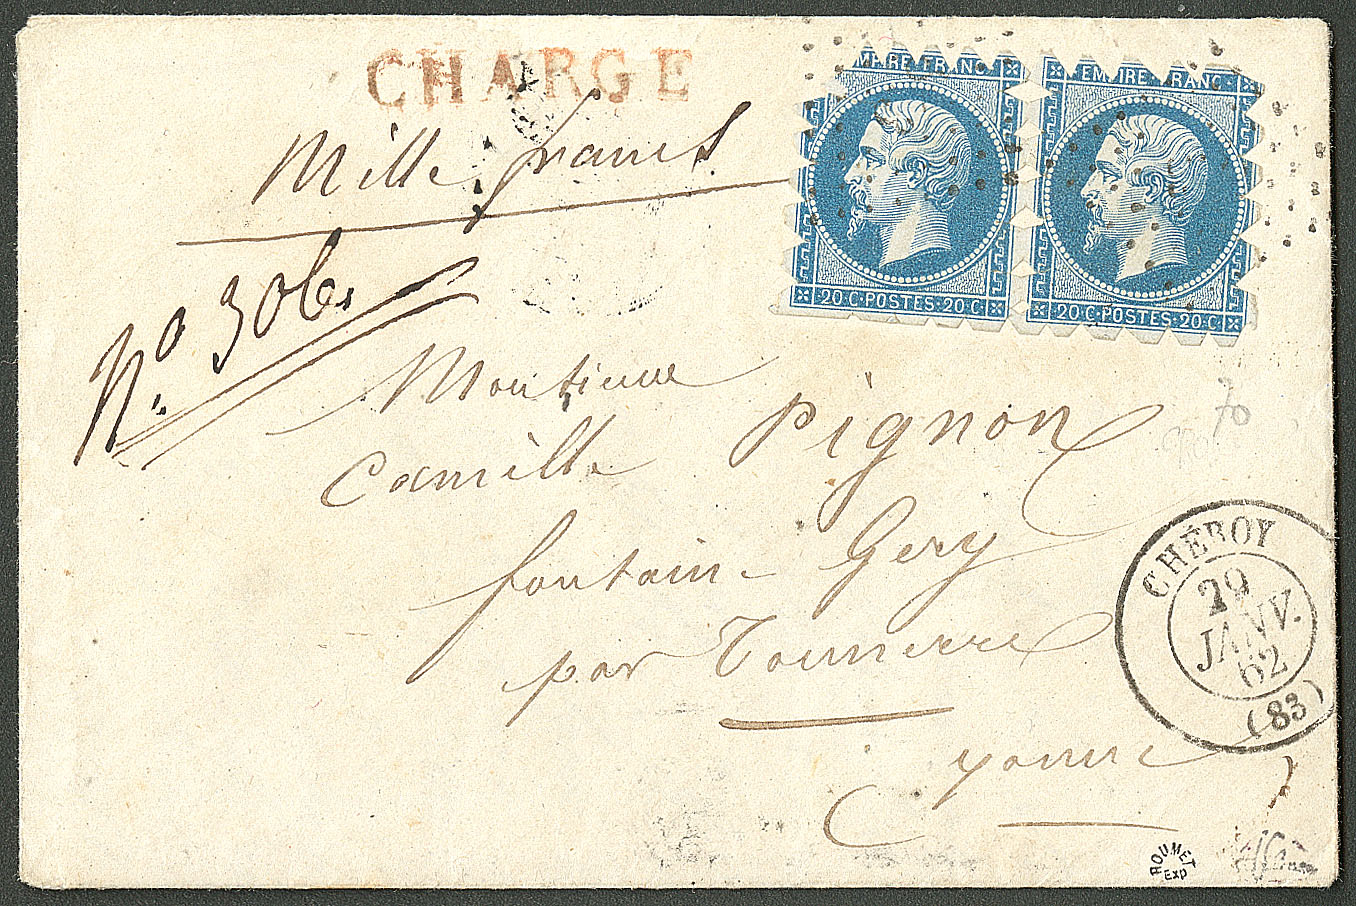 CHARGE
Mille francs
EMPIRE FRANC
EMPIRE FRANC
20·C·POSTES·20·C
20·C·POSTES·20·C
No 306
Monsieur
Camille Pignon
fontaine Gery
par Tonnerre
yonne
70
CHÉROY
29
JANV.
62
(83)
ROUMET
Exp